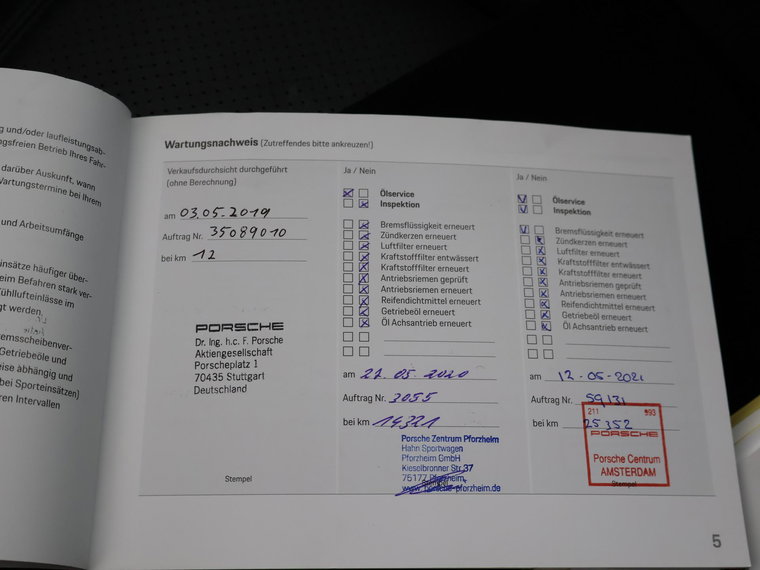 g und/oder laufleistungsab-
gsfreien Betrieb Ihres Fahr-
darüber Auskunft, wann
Wartungstermine bei Ihrem
und Arbeitsumfänge
insätze häufiger über-
eim Befahren stark ver-
ühllufteinlässe im
gt werden.
emsscheibenver-
Getriebeöle und
eise abhängig und
bei Sporteinsätzen)
ren Intervallen
Wartungsnachweis (Zutreffendes bitte ankreuzen!)
Verkaufsdurchsicht durchgeführt
(ohne Berechnung)
am 03.05.2019
Auftrag Nr. 35089010
bei km 12
PORSCHE
Dr. Ing. h.c. F. Porsche
Aktiengesellschaft
Porscheplatz 1
70435 Stuttgart
Deutschland
Stempel
Ja / Nein
Ölservice
Inspektion
Bremsflüssigkeit erneuert
Zündkerzen erneuert
Luftfilter erneuert
Kraftstofffilter entwässert
Kraftstofffilter erneuert
Antriebsriemen geprüft
Antriebsriemen erneuert
Reifendichtmittel erneuert
Getriebeöl erneuert
Öl Achsantrieb erneuert
am 22.05.2020
Auftrag Nr. 3055
bei km 14321
Porsche Zentrum Pforzheim
Hahn Sportwagen
Pforzheim GmbH
Kieselbronner Str.37
75177 Pforzheim
www.porsche-pforzheim.de
Ja / Nein
Ölservice
Inspektion
Bremsflüssigkeit erneuert
Zündkerzen erneuert
Luftfilter erneuert
Kraftstofffilter entwässert
Kraftstofffilter erneuert
Antriebsriemen geprüft
Antriebsriemen erneuert
Reifendichtmittel erneuert
Getriebeöl erneuert
Öl Achsantrieb erneuert
am 12-05-2021
Auftrag Nr. 59131
211 993
bei km 25352
PORSCHE
Porsche Centrum
AMSTERDAM
Stempel
5